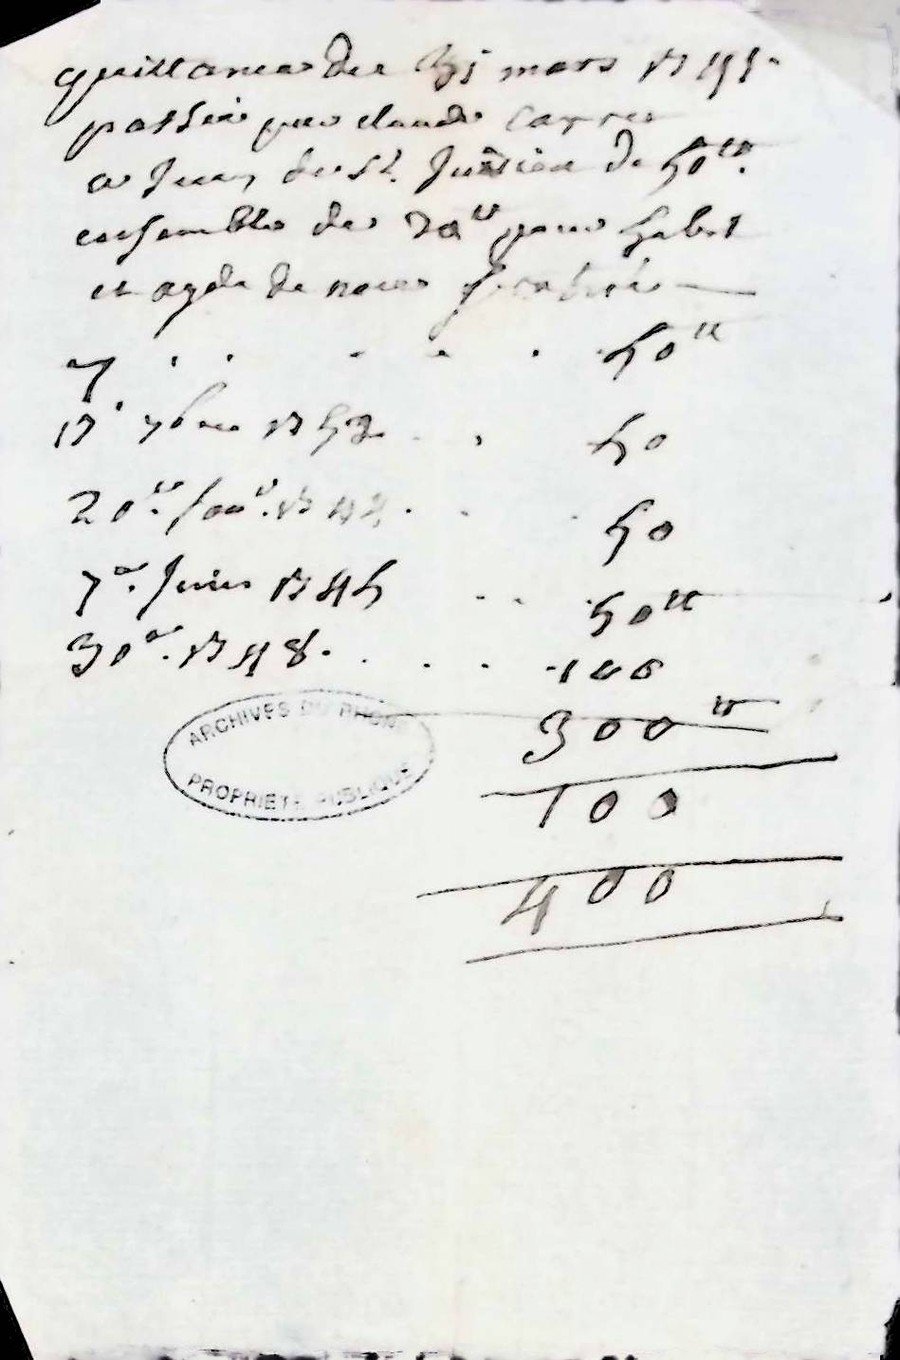 quittance du 31 mars 1741
passée par claude Carret
a Jean de St. Justien de 50tt.
ensemble de 20tt pour habit
et
7 . . . . . 50tt
17 7bre 1753 . . 50
20 . . 50
7e. Juin 1745 . . 50tt
30e. 1748 . . . . 100
300tt
100
400
ARCHIVES DU RHONE
PROPRIETE PUBLIQUE